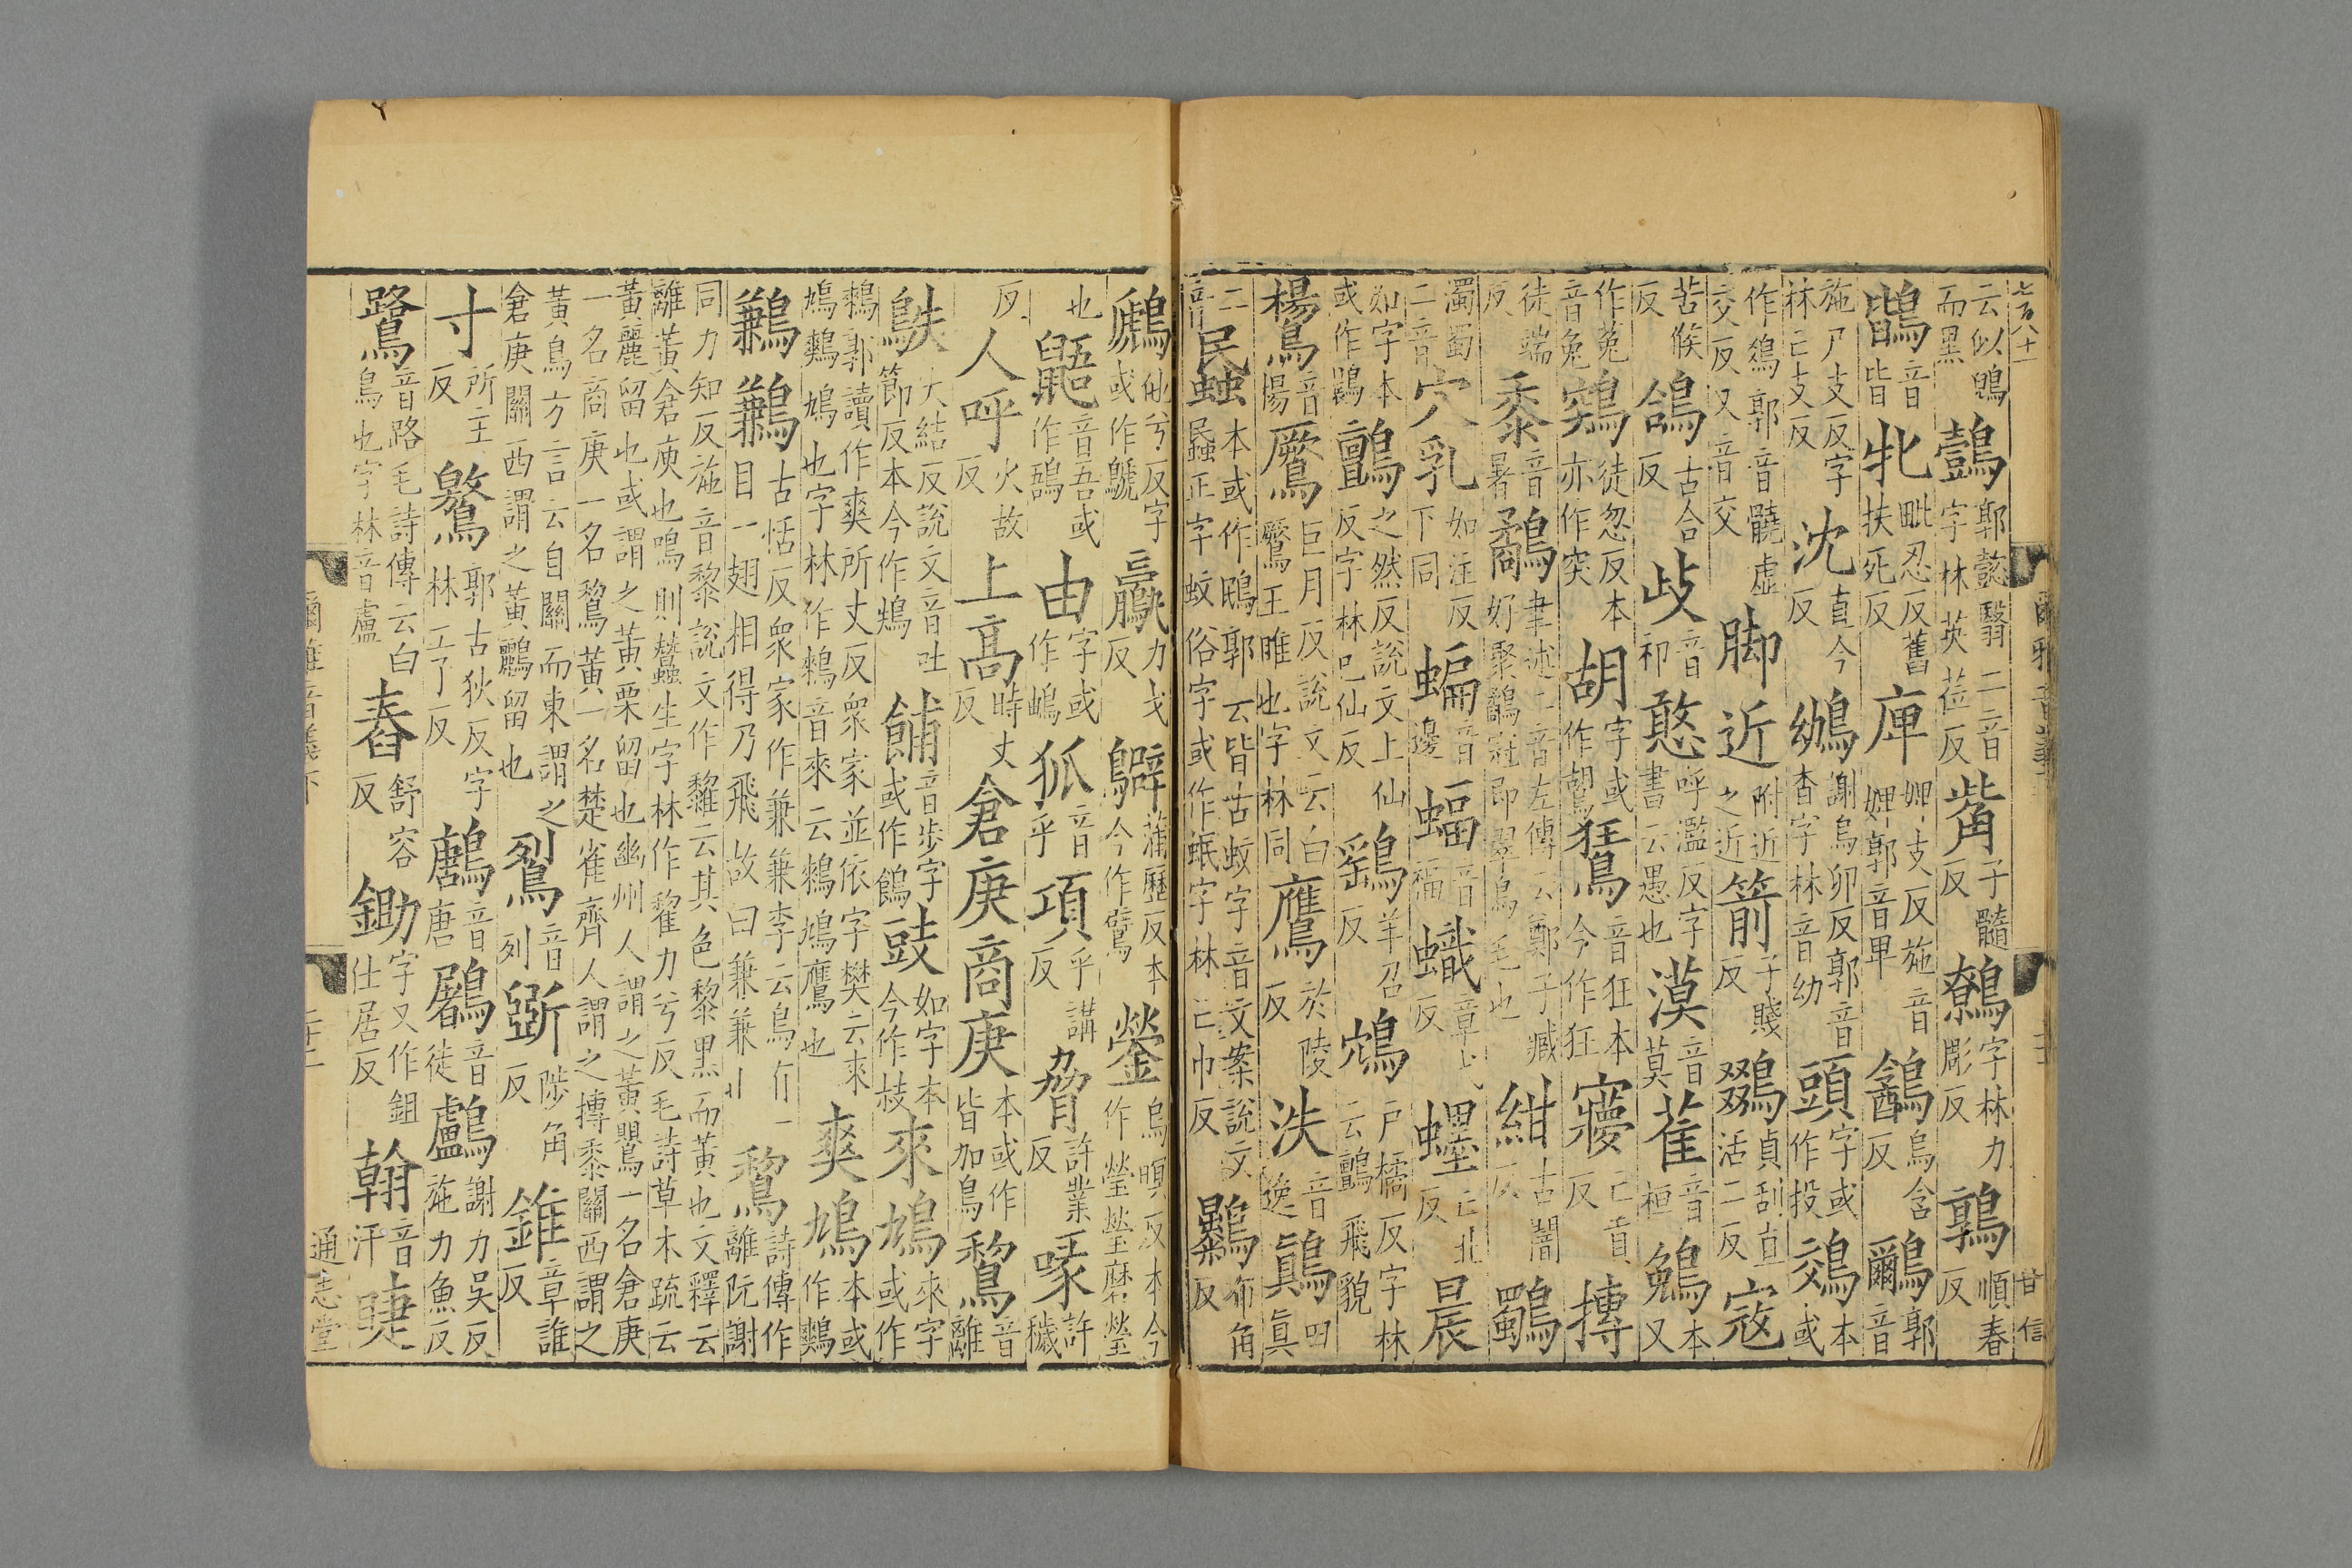 七百八十一
云似鴞而黑 鷧 郭懿翳二音字林英莅反 觜 子髓反 鷯 字林力彫反 鶉 順春反
䳢 音皆 牝 毗忍反舊扶死反 庳 婢支反施音婢郭音卑 䳺 烏含反 鸍 郭音
施尸支反字林亡支反 沈 直今反 鴢 謝烏卯反郭音杳字林音幼 頭 字或作投 鵁 本或
作鵁郭音髐虛交反又音交 脚近 附近之近 箭 子賤反 鵽 貞刮直活二反 寇
苦候反 鴿 古合反 歧 音祁 憨 呼濫反字書云愚也 漠 音莫 萑 音桓 鵵 本又
作菟音兔 鶟 徒忽反本亦作突 胡 字或作鶘 鵟 音狂本今作狂 㝱 亡貢反 摶
徒端反 黍 音暑 鷸 聿述二音左傳云鄭子臧好聚鷸冠即翠鳥毛也 紺 古闇反 鸀
濁蜀二音 穴乳 如注反下同 蝙 音邊 蝠 音福 蟙 章弋反 䘃 亡北反 晨
如字本或作鷐 鸇 之然反說文上仙反字林己仙反 鷂 羊召反 鴥 戶橘反字林云鸇飛貌
鸉 音楊 鷢 巨月反說文云白鷢王雎也字林同 鷹 於陵反 泆 音逸 鷏 田真
二音 䳟 本或作鴖郭云皆古蚊字音文案說文䘇正字蚊俗字或作蚊字林亡巾反 䴌 布角反
鷈 他兮反字或作鷉 鸁 力戈反 鷿 蒲歷反本今作鷿 鎣 烏暝反本今作瑩瑩磨瑩
也 鼯 音吾或作鵐 由 字或作㕀 狐 音乎 項 乎講反 脅 許業反 喙 許穢
反 人呼 火故反 上高 時丈反 倉庚商庚 本或作皆加鳥 鵹 音離
鴩 大結反說文音吐節反本今作鴩 餔 音步字或作餔 豉 如字本今作枝 來鳩 來字或作
鶆郭讀作爽所丈反眾家並依字樊云來鳩鶆鳩也字林作鶆音來云鶆鳩鷹也 爽鳩 本或作鷞
鶼鶼 古恬反眾家作兼兼李云鳥有一目一翅相得乃飛故曰兼兼 鵹 詩傳作離阮謝
同力知反施音黎說文作䨄云其色黎黑而黃也文釋云離黃倉庚也鳴則蠶生字林作鵹力兮反毛詩草木疏云
黃鸝留也或謂之黃栗留也幽州人謂之黃鸎一名倉庚一名商庚一名鵹黃一名楚雀齊人謂之摶黍關西謂之
黃鳥方言云自關而東謂之倉庚關西謂之黃鸝留也 鴷 音列 斲 陟角反 錐 章誰反
寸 所主反 鷔 郭古狄反字林工了反 鶶 音唐 鷵 音徒 鸕 謝力吳反施力魚反
鷺 音路毛詩傳云白鳥也字林音盧 舂 舒容反 鋤 字又作鉏仕居反 翰 音汗 睫
爾雅音義下
二十二
通志堂